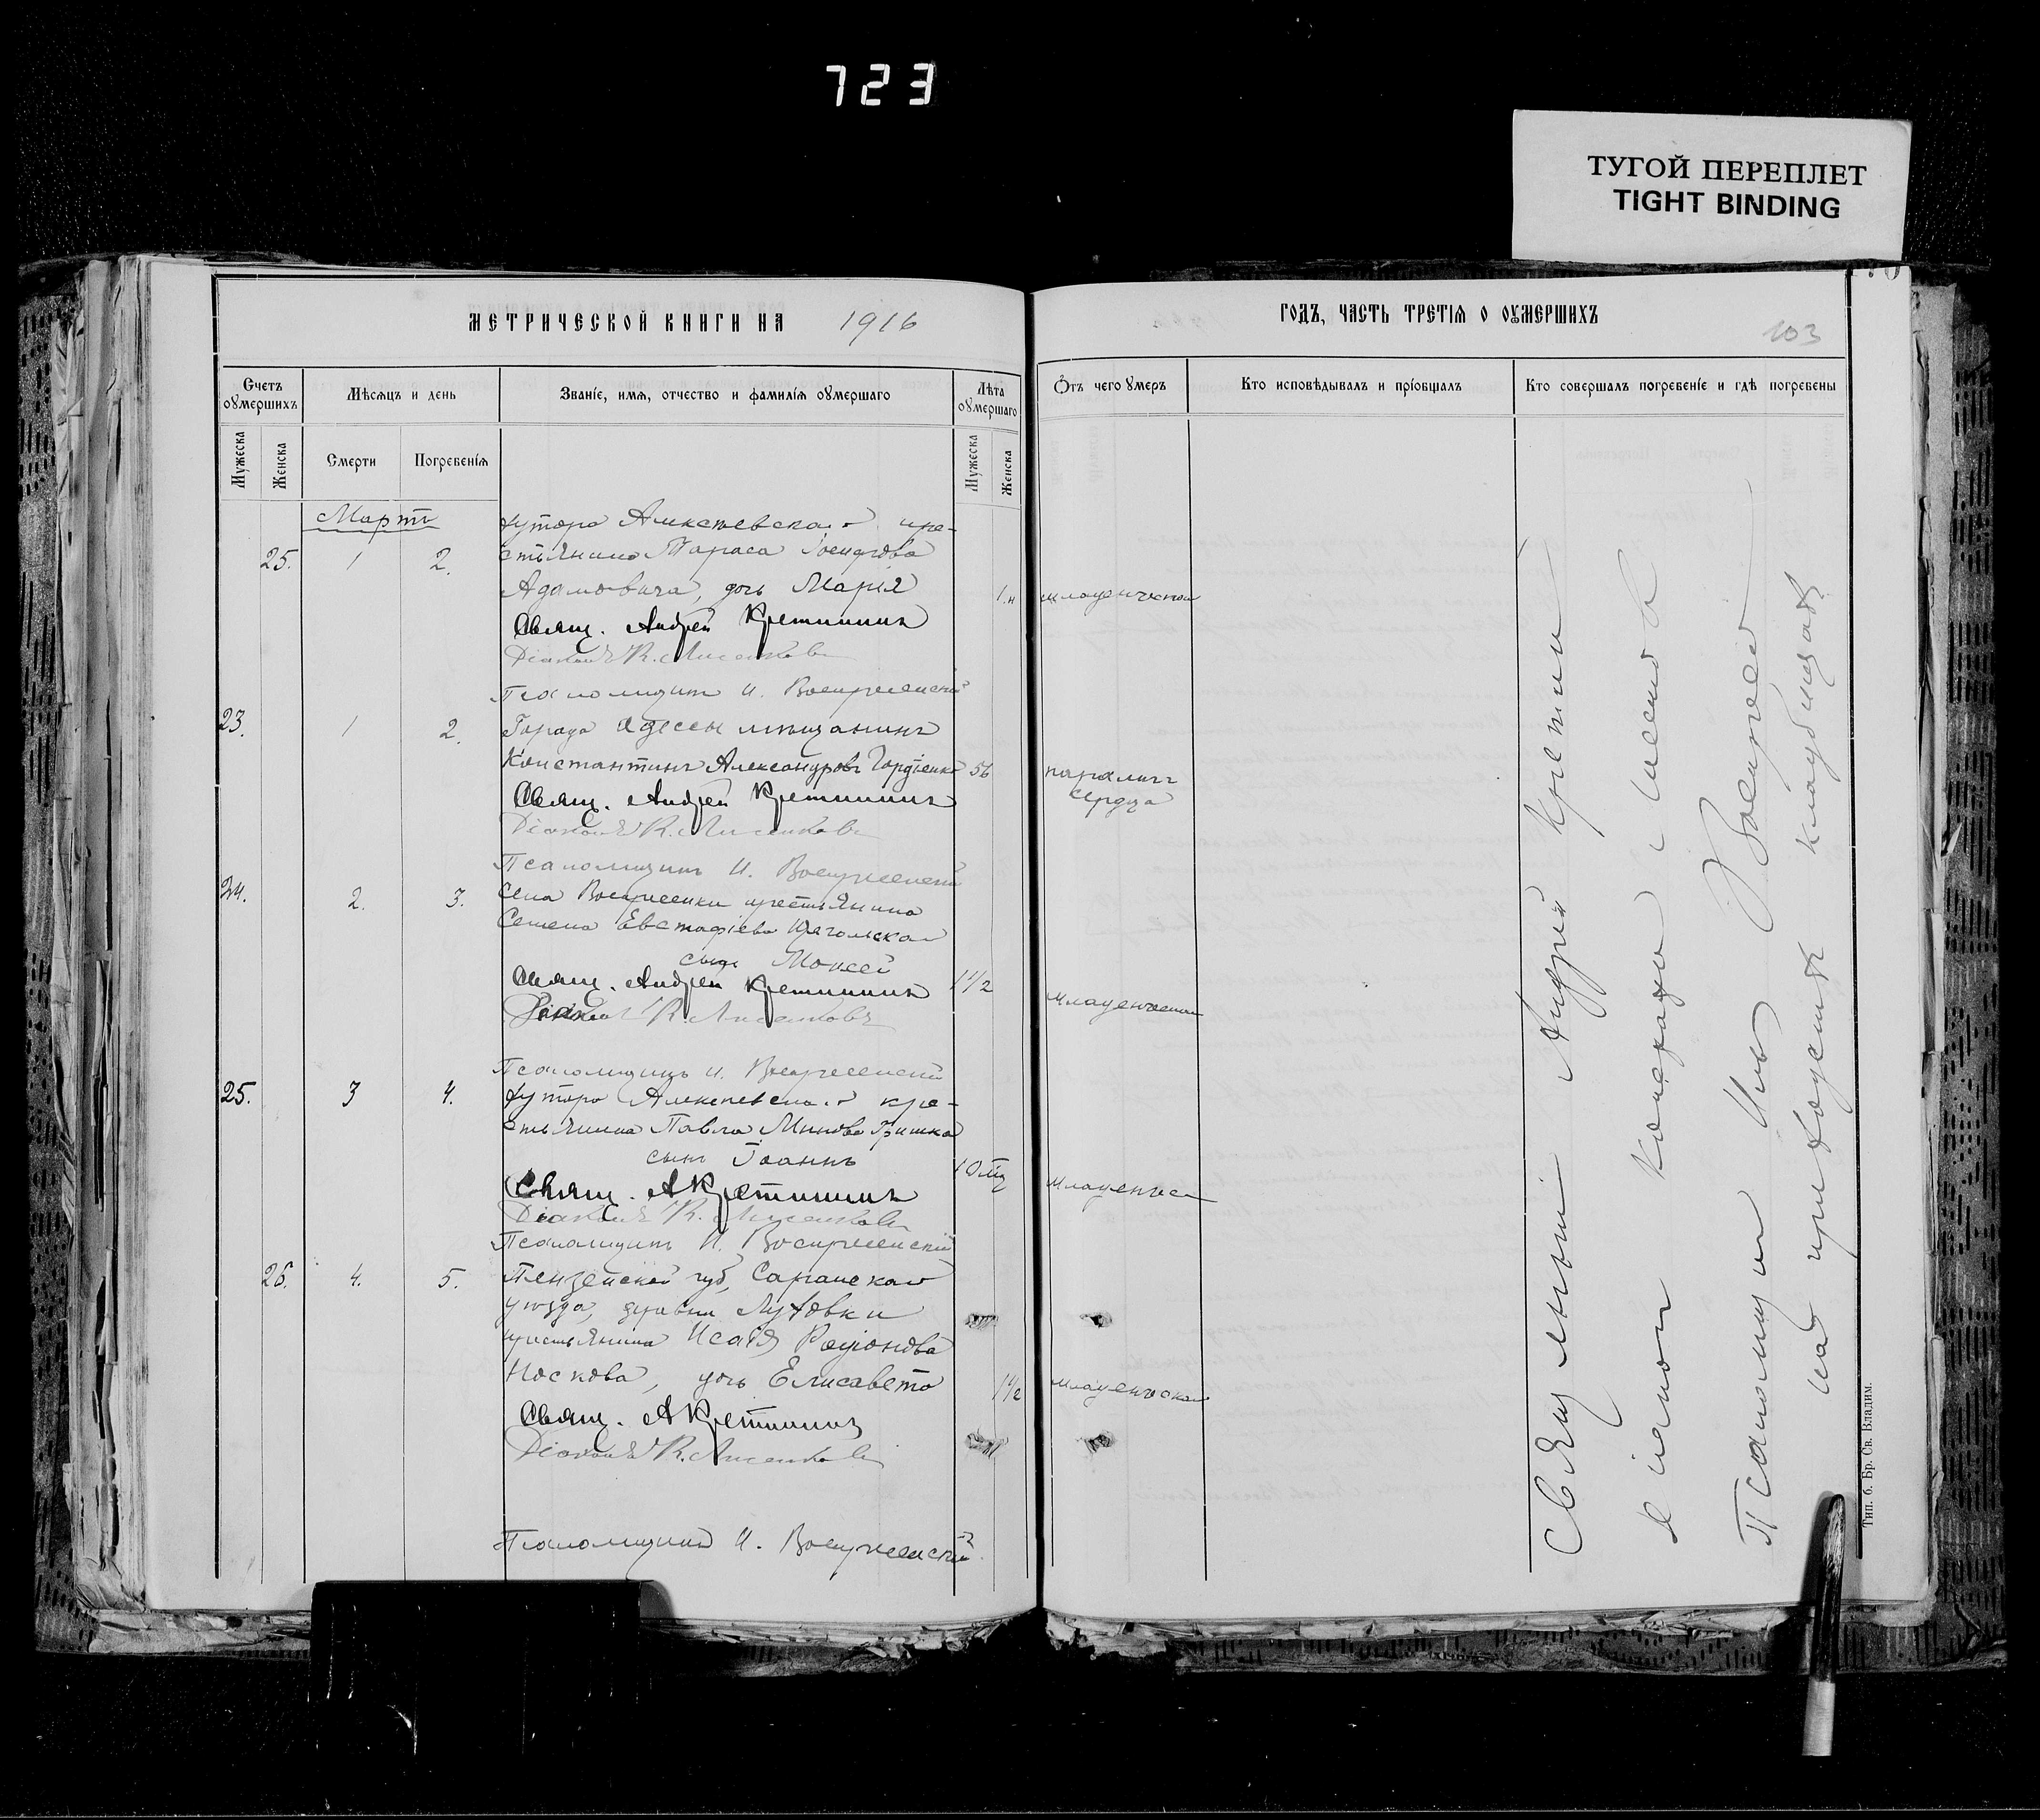 723
ТУГОЙ ПЕРЕПЛЕТ
TIGHT BINDING
МЕТРИЧЕСКОЙ КНИГИ НА 1916
ГОДЪ, ЧАСТЬ ТРЕТІЯ О ОУМЕРШИХЪ
103
Счетъ оумершихъ
Мѣсяцъ и день
Званіе, имя, отчество и фамилія оумершаго
Лѣта оумершаго
Отъ чего умеръ
Кто исповѣдывалъ и пріобщалъ
Кто совершалъ погребеніе и гдѣ погребены
Мужеска
Женска
Смерти
Погребенія
Мужеска
Женска
Мартъ
хутора Алексѣевскаго кре-
25. 1 2. стьянина Тараса
Адамовича, дочь Марія 1 н младенческой
Свящ. Андрей Кретининъ
Діаконъ К. Лисенковъ
Псаломщикъ И. Воскресенскій
23. 1 2. Города Одессы мѣщанинъ
Константинъ Александровъ Гордіенко 56 параличъ
сердца
Свящ. Андрей Кретининъ
Діаконъ К. Лисенковъ
Псаломщикъ И. Воскресенскій
24. 2. 3. Села Воскресенки крестьянина
Семена Евстафіева
сынъ Моисей
Свящ. Андрей Кретининъ 1 1/2 младенческой
Діаконъ К. Лисенковъ
Псаломщикъ И. Воскресенскій
25. 3 4. хутора Алексѣевскаго кре-
стьянина Павла Минова Гришка
сынъ Іоаннъ 10 мц
Свящ. А Кретининъ младенческ
Діаконъ К. Лисенковъ
Псаломщикъ И. Воскресенскій
26. 4. 5. Пензенской губ, Саранскаго
уѣзда, деревни Луховки
крестьянина Исаія Родіонова
Носкова, дочь Елисавета 1 1/2 младенческой
Свящ. А Кретининъ
Діаконъ К. Лисенковъ
Псаломщикъ И. Воскресенскій
Священникъ Андрей Кретининъ
Діаконъ Лисенковъ
Псаломщикъ Воскресенскій
на приходскомъ кладбищѣ
Тип. б. Бр. Св. Владим.